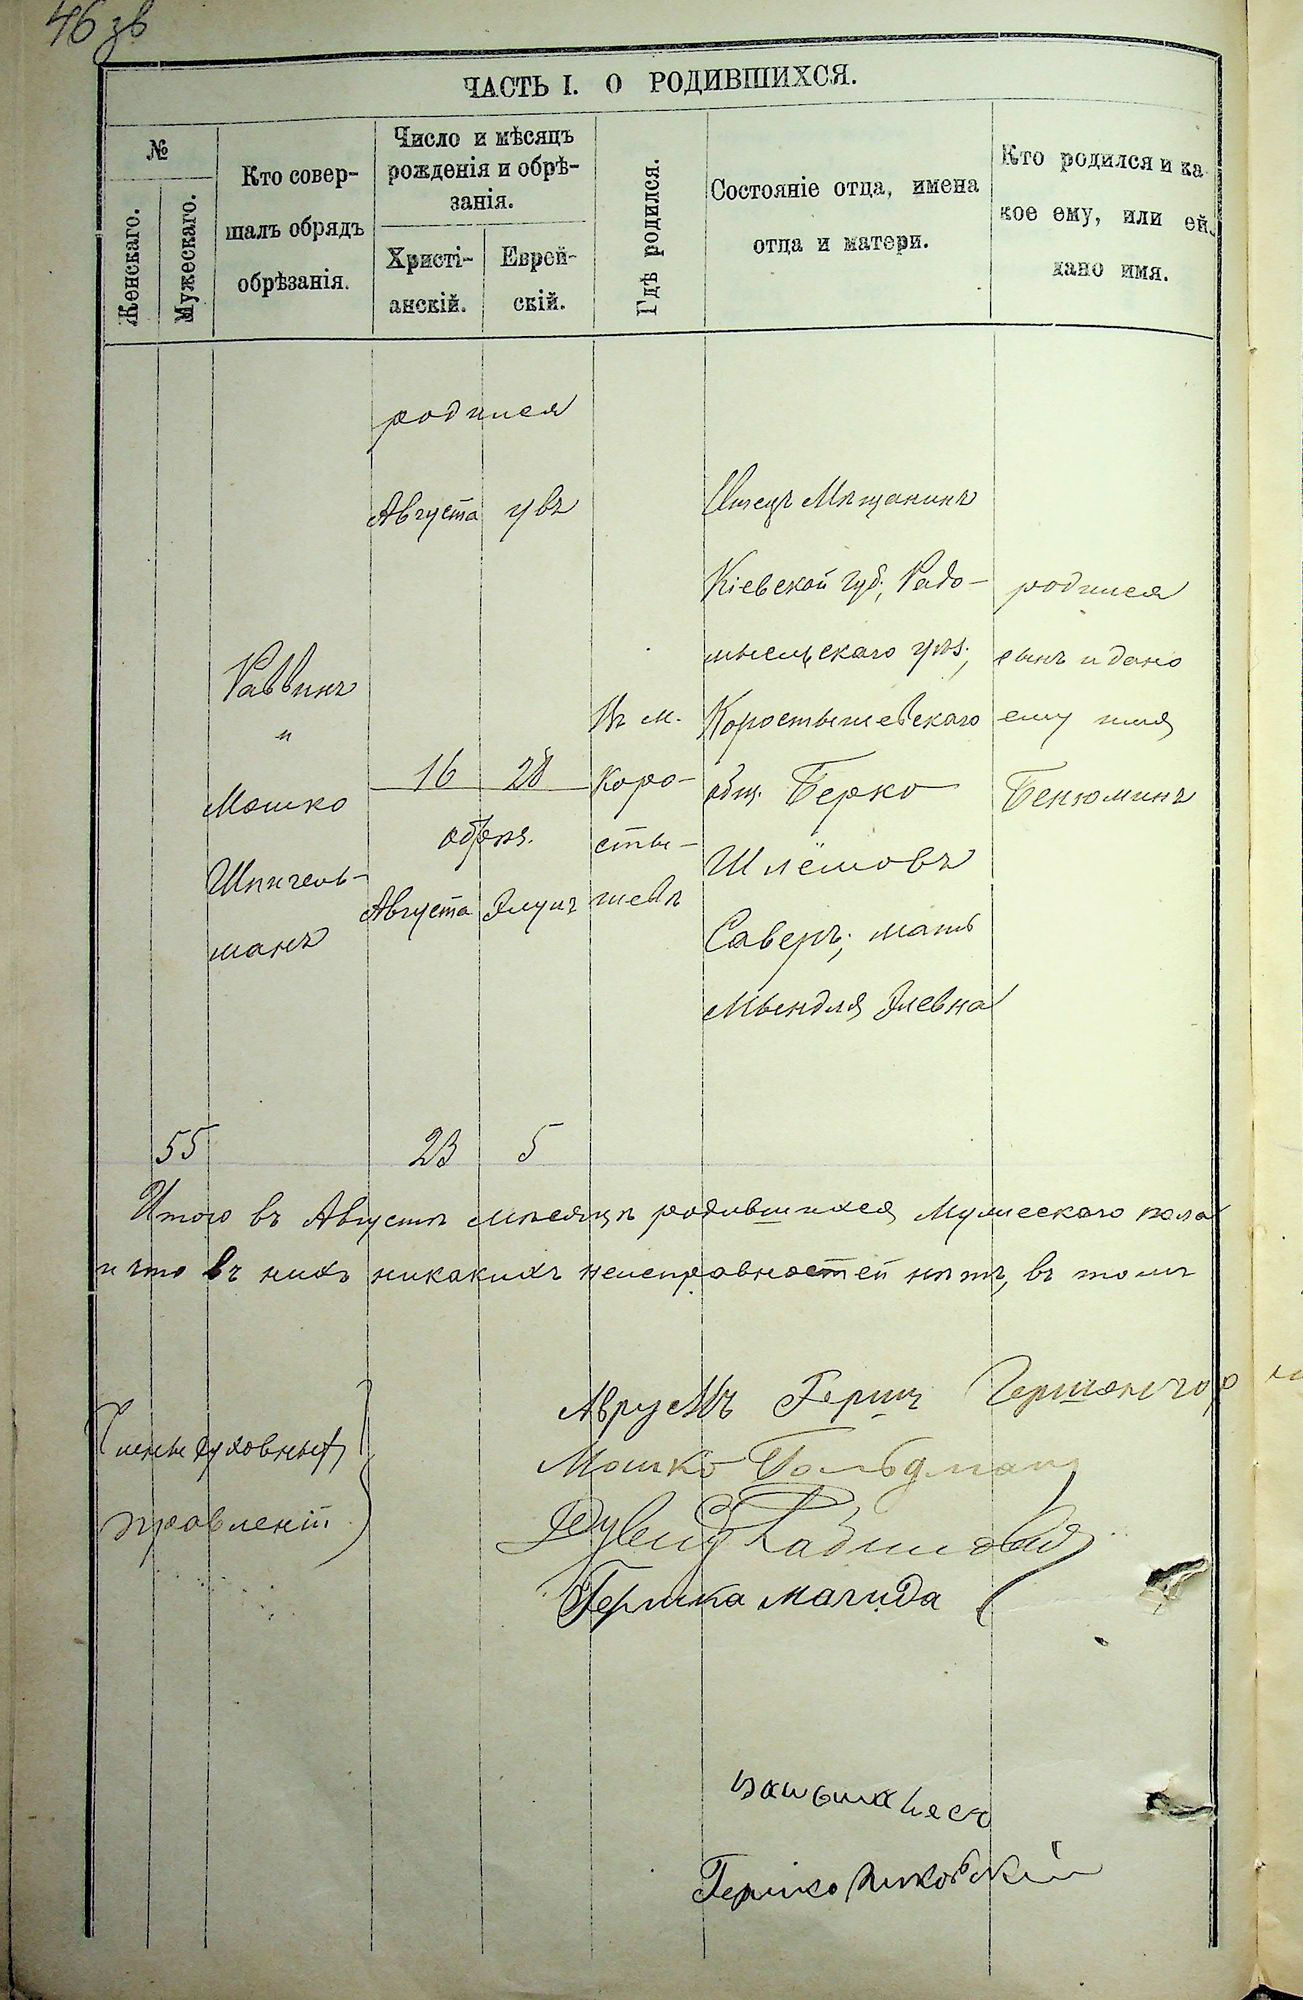 46 зв
ЧАСТЬ I. О РОДИВШИХСЯ.
№
Женскаго.
Мужескаго.
Кто совер-
шалъ обрядъ
обрѣзанія.
Число и мѣсяцъ
рожденія и обрѣ-
занія.
Христі-
анскій.
Еврей-
скій.
Гдѣ родился.
Состояніе отца, имена
отца и матери.
Кто родился и ка
кое ему, или ей
дано имя.
55
Раввинъ
и
Мошко
Шпигель-
манъ
родился
Августа
16 28
обрѣз.
Августа Элулъ
23 5
Въ м.
Коро-
сты-
шевѣ
Отецъ Мѣщанинъ
Кіевской губ., Радо-
мысльскаго уѣз.,
Коростышевскаго
общ. Берко
Шлёмовъ
Саверъ; мать
Мындля Элевна
родился
сынъ и дано
ему имя
Бенюминъ
Итого въ Августѣ мѣсяцѣ родившихся Мужескаго пола
и что въ нихъ никакихъ неисправностей нѣтъ, въ томъ
Члены духовныхъ
правленій
Аврумъ Герш
Мошко Гольдман
Рабинович
Гершка Магида
Гершко